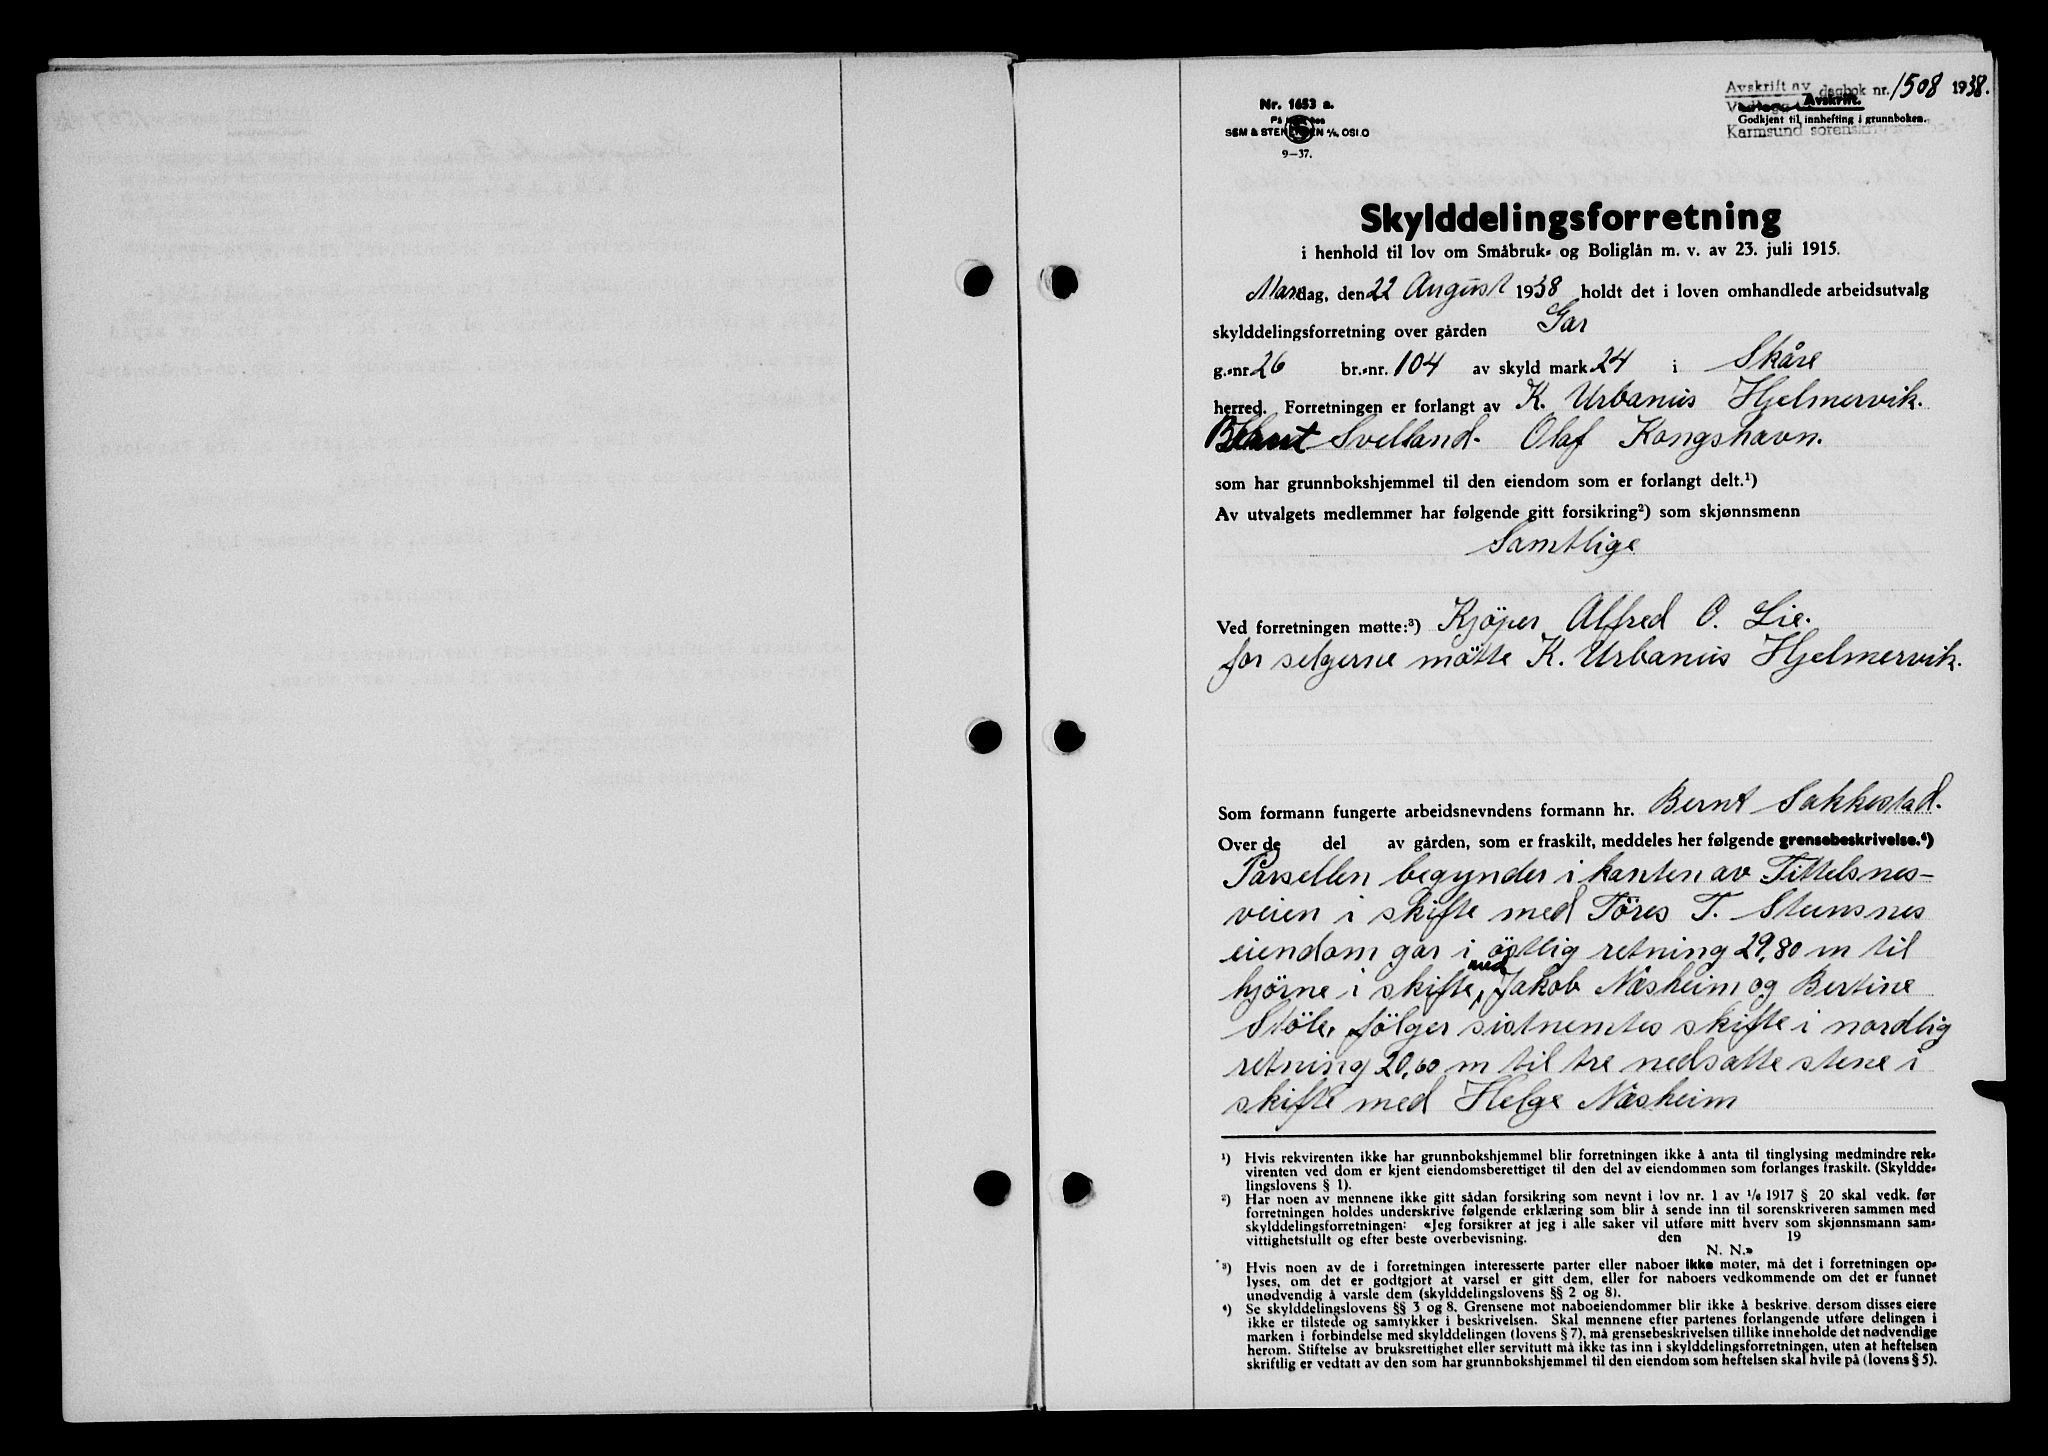 Nr. 1653 a.
SEM & STENERSEN A/S, OSLO
9–37.
Avskrift av dagbok nr. 1508 1938.
Avskrift.
Godkjent til innhefting i grunnboken.
Karmsund sorenskriver
Skylddelingsforretning
i henhold til lov om Småbruk- og Boliglån m. v. av 23. juli 1915.
Mandag, den 22 August 1938 holdt det i loven omhandlede arbeidsutvalg
skylddelingsforretning over gården Gar
g.-nr. 26 br.-nr. 104 av skyld mark 24 i Skåre
herred. Forretningen er forlangt av K. Urbanus Hjelmervik.
Bernt Svelland. Olaf Kongshavn.
som har grunnbokshjemmel til den eiendom som er forlangt delt.¹)
Av utvalgets medlemmer har følgende gitt forsikring²) som skjønnsmenn
Samtlige
Ved forretningen møtte:³) Kjöper Alfred O. Lie.
for selgerne mötte K. Urbanus Hjelmervik.
Som formann fungerte arbeidsnevndens formann hr. Bernt Sakkestad.
Over de del av gården, som er fraskilt, meddeles her følgende grensebeskrivelse.⁴)
Parsellen begynder i kanten av Tittelsnes-
veien i skifte med Töres T. Steinsnes
eiendom går i östlig retning 29,80 m til
hjörne i skifte med Jakob Næsheim og Bertine
Stöle, fölger sistnemtes skifte i nordlig
retning 20,60 m til tre nedsatte stene i
skifte med Helge Næsheim
¹) Hvis rekvirenten ikke har grunnbokshjemmel blir forretningen ikke å anta til tinglysing medmindre rek-
virenten ved dom er kjent eiendomsberettiget til den del av eiendommen som forlanges fraskilt. (Skyldde-
lingslovens § 1).
²) Har noen av mennene ikke gitt sådan forsikring som nevnt i lov nr. 1 av 1/6 1917 § 20 skal vedk. før
forretningen holdes underskrive følgende erklæring som blir å sende inn til sorenskriveren sammen med
skylddelingsforretningen: «Jeg forsikrer at jeg i alle saker vil utføre mitt hverv som skjønnsmann sam-
vittighetsfullt og efter beste overbevisning. den 19
N. N.»
³) Hvis noen av de i forretningen interesserte parter eller naboer ikke møter, må det i forretningen op-
lyses, om det er godtgjort at varsel er gitt dem, eller for naboers vedkommende om det er funnet
unødvendig å varsle dem (skylddelingslovens §§ 2 og 8).
⁴) Se skylddelingslovens §§ 3 og 8. Grensene mot naboeiendommer blir ikke å beskrive, dersom disses eiere
ikke er tilstede og samtykker i beskrivelsen. Skal mennene efter partenes forlangende utføre delingen i
marken i forbindelse med skylddelingen (lovens § 7), må grensebeskrivelsen tillike inneholde det nødvendige
herom. Stiftelse av bruksrettighet eller servitutt må ikke tas inn i skylddelingsforretningen, uten at heftelsen
skriftlig er vedtatt av den som har grunnbokshjemmel til den eiendom som heftelsen skal hvile på (lovens § 5).